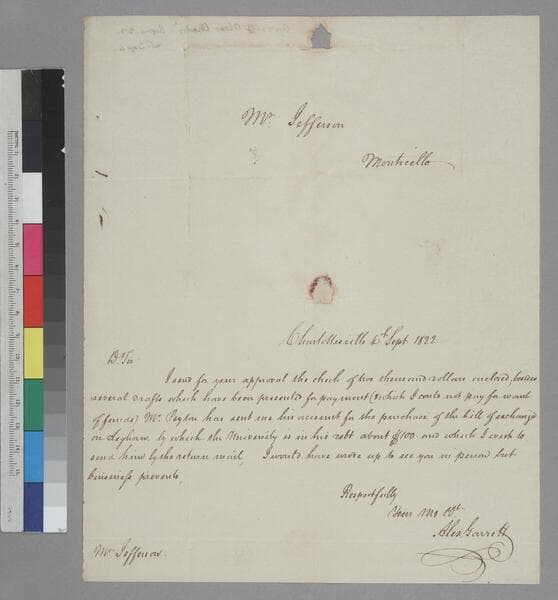 Mr. Jefferson
Monticello
Charlottesville 6th Sept 1822
D. Sir
I send for your approval the check of two thousand dollars enclosed, besides
several drafts which have been presented for payment (& which I could not pay for want
of funds) Mr. Peyton has sent me his account for the purchase of the bill of exchange
on Leghorn by which the University is in his debt about $100. and which I wish to
send him by the return mail, I would have come up to see you in person but
business prevents.
Respectfully
Your Mo Obt.
Alex Garrett
Mr. Jefferson.